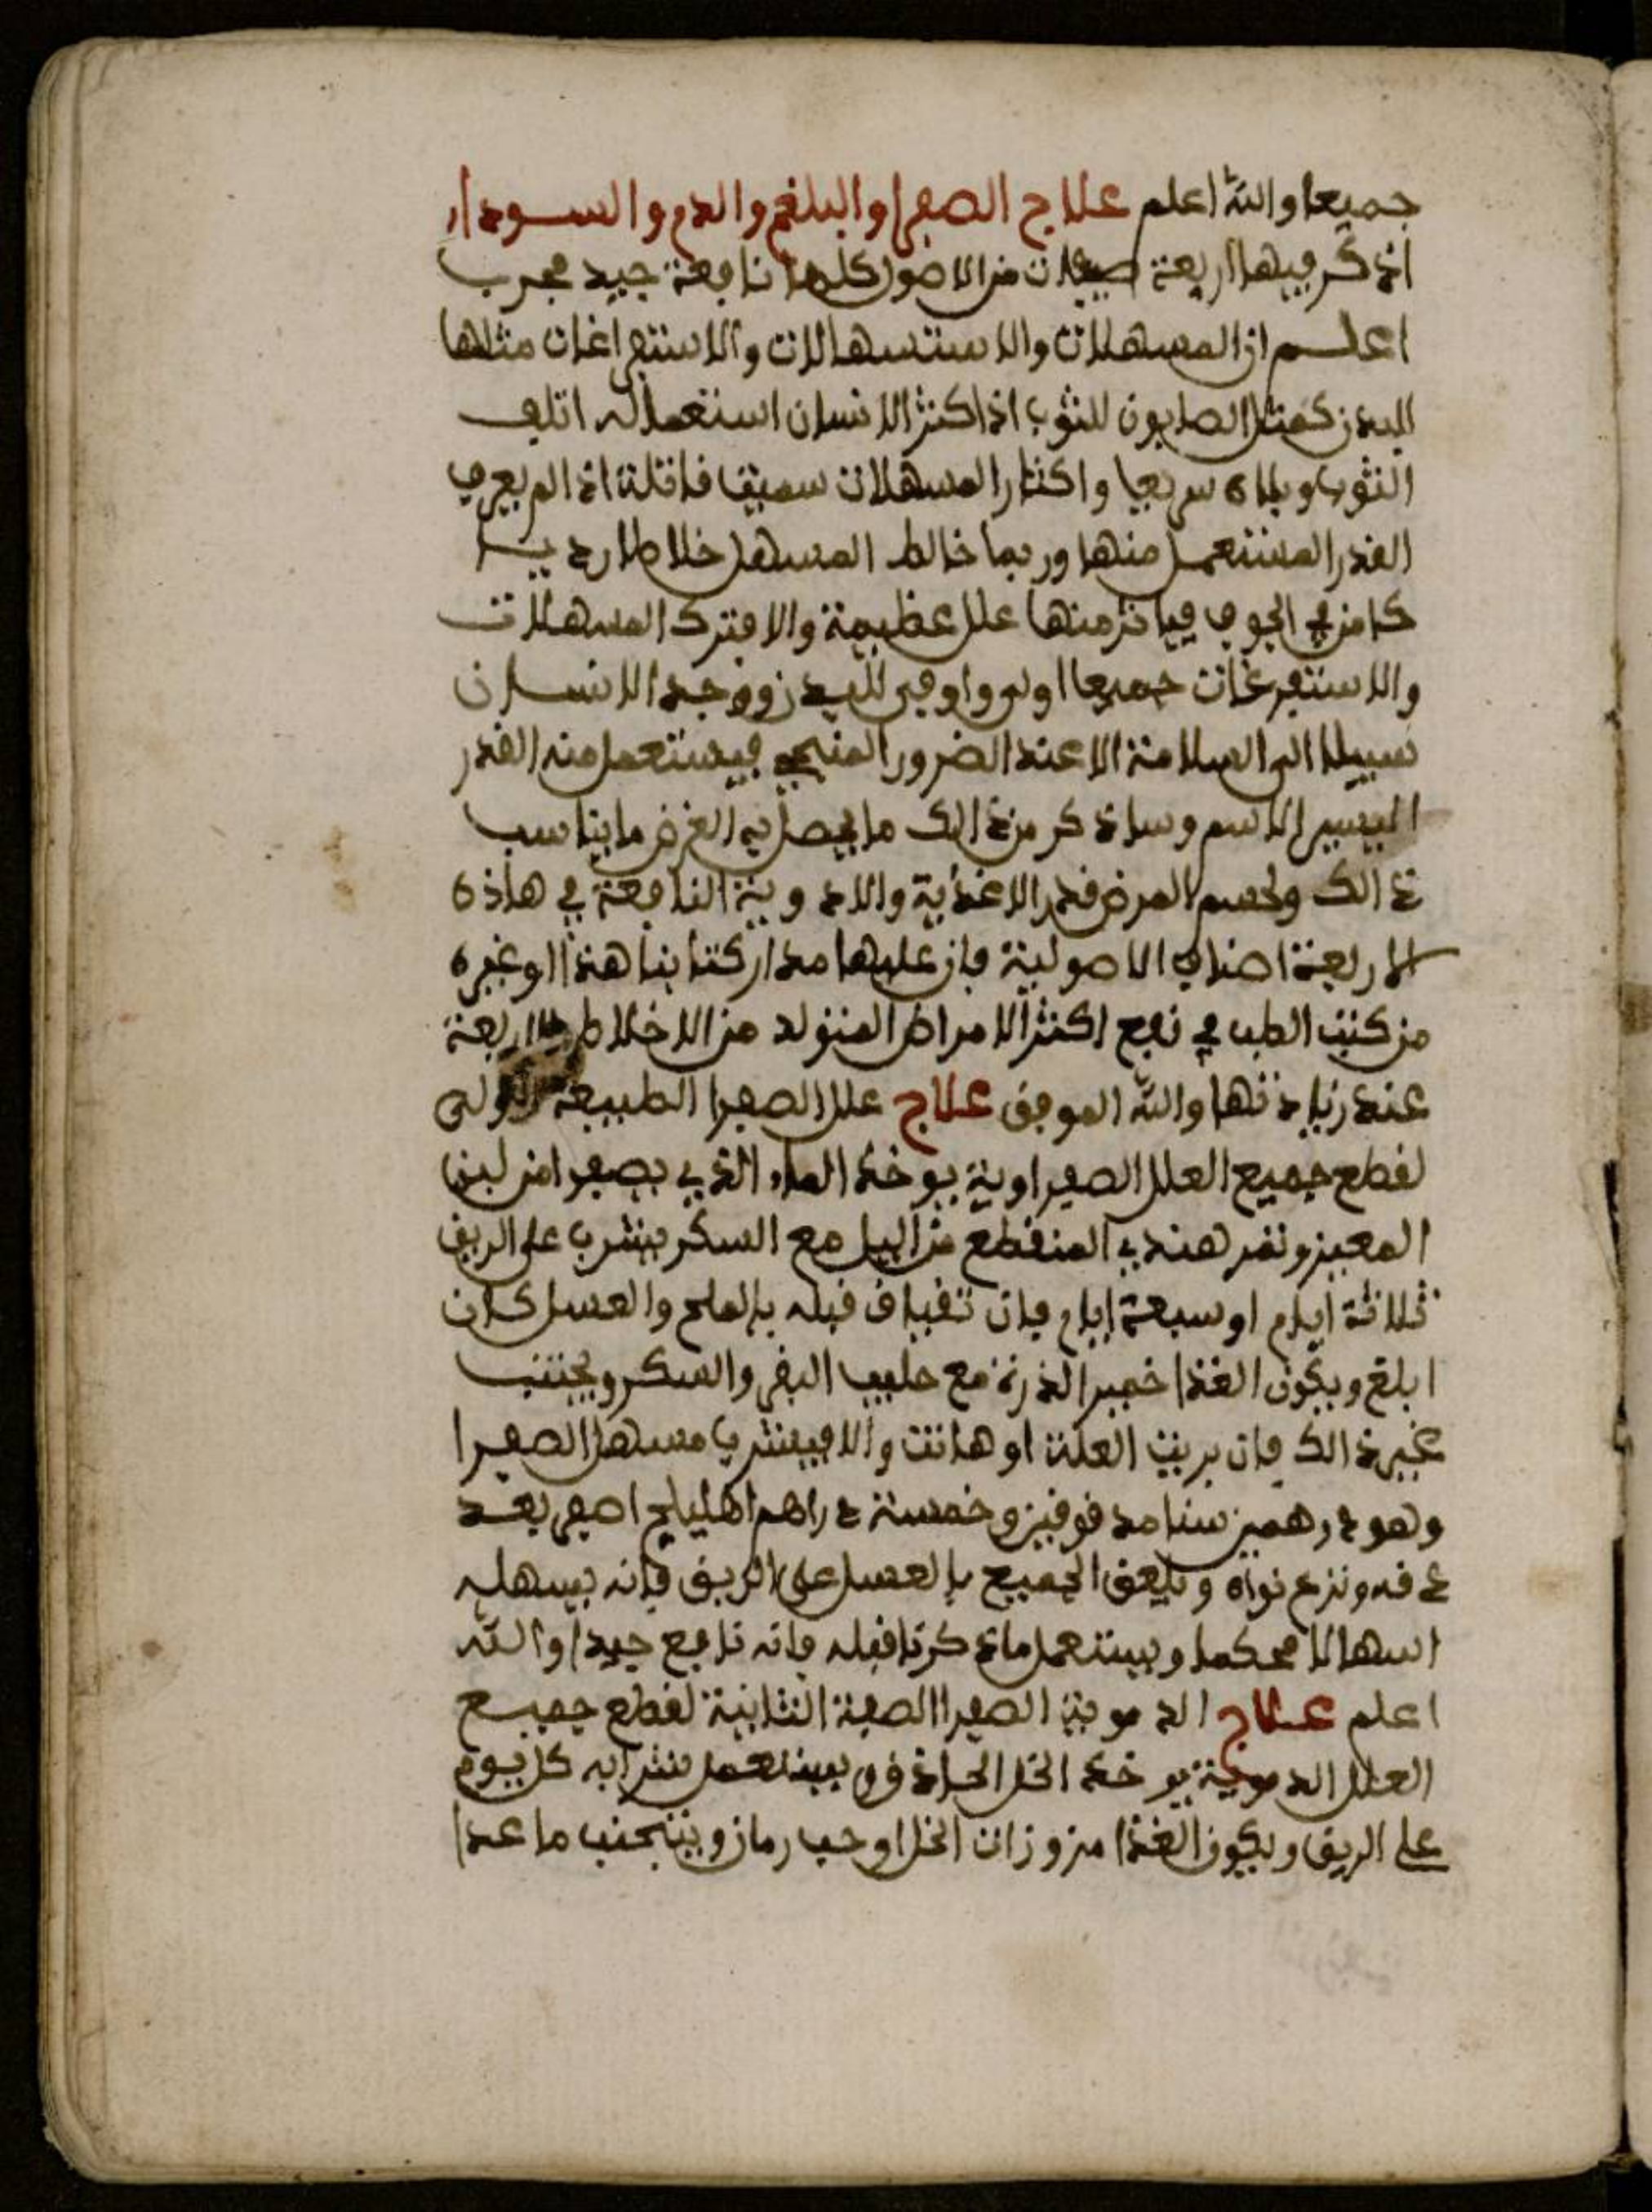 جميعا والله اعلم علاج الصفرا والبلغم والدم والسودا
اذكر فيها اربعة صفات من الاصول كلها نافعة جيد مجرب
اعلم ان المسهلات والاستسهالات والاستفراغات مثلها
للبدن كمثل الصابون للثوب اذا كثر الانسان استعماله اتلف
الثوب وبلاه سريعا واكثار المسهلات سميت قاتلة اذا لم يعرف
القدر المستعمل منها وربما خالط المسهل خلاطا رديا
كامن في الجوف فياتر منها علل عظيمة والا فترك المسهلات
والاستفرغات جميعا اولى واوفى للبدن ووجد الانسان
سبيلا الى السلامة الا عند الضرور المنيحي فيستعمل منه القدر
اليسير الاسم وساذكر من ذالك ما يحصل به الغرض ما يناسب
ذالك ولحسم المرض قدر الاغذية والادوية النافعة في هاذه
الاربعة اصناف الاصولية فان عليها مدار كتابنا هذا او غيره
من كتب الطب في نفع اكثر الامراض المتولد من الاخلاط الاربعة
عند زيادتها والله الموفق علاج علل الصفرا الطبيعة الاولى
لقطع جميع العلل الصفراوية يوخذ الماء الذي يصفر امن لبن
المعيز وتمر هندي المنقطع من اليل مع السكر فيشرب على الريق
ثلاثة ايام او سبعة ايام فان تقياف قبله بالملح والعسل كان
ابلغ ويكون الغذا خمير الذرة مع حليب البقر والسكر ويجتنب
غير ذالك فان بريت العلة او هانت والا فيشرب مسهل الصفرا
وهو درهمين سنا مدقوقين وخمسة دراهم اهليلج اصفر بعد
دقه ونزع نواه ويلعق الجميع بالعسل على الريق فانه يسهله
اسهالا محكما ويستعمل ما ذكرنا قبله فانه نافع جيدا والله
اعلم علاج الدموية الصفرا الصفة الثانية لقطع جميع
العلل الدموية يوخذ الخل الحاذق ويستعمل شرابه كل يوم
على الريق ويكون الغذا مزوزات الخل او حب رمان ويتجنب ما عدا